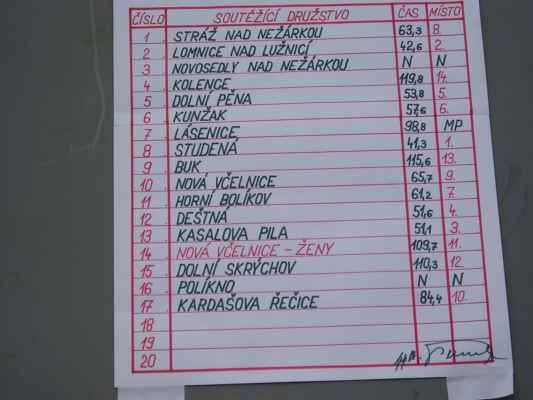 ČÍSLO SOUTĚŽÍCÍ DRUŽSTVO ČAS MÍSTO
1 STRÁŽ NAD NEŽÁRKOU 63,3 8.
2 LOMNICE NAD LUŽNICÍ 42,6 2.
3 NOVOSEDLY NAD NEŽÁRKOU N N
4 KOLENCE 119,8 14.
5 DOLNÍ PĚNA 53,8 5.
6 KUNŽAK 57,6 6.
7 LÁSENICE 98,8 MP
8 STUDENÁ 41,3 1.
9 BUK 115,6 13.
10 NOVÁ VČELNICE 65,7 9.
11 HORNÍ BOLÍKOV 61,2 7.
12 DEŠTNÁ 51,6 4.
13 KASALOVA PILA 51,1 3.
14 NOVÁ VČELNICE - ŽENY 109,7 11.
15 DOLNÍ SKRÝCHOV 110,3 12.
16 POLÍKNO N N
17 KARDAŠOVA ŘEČICE 84,4 10.
18
19
20